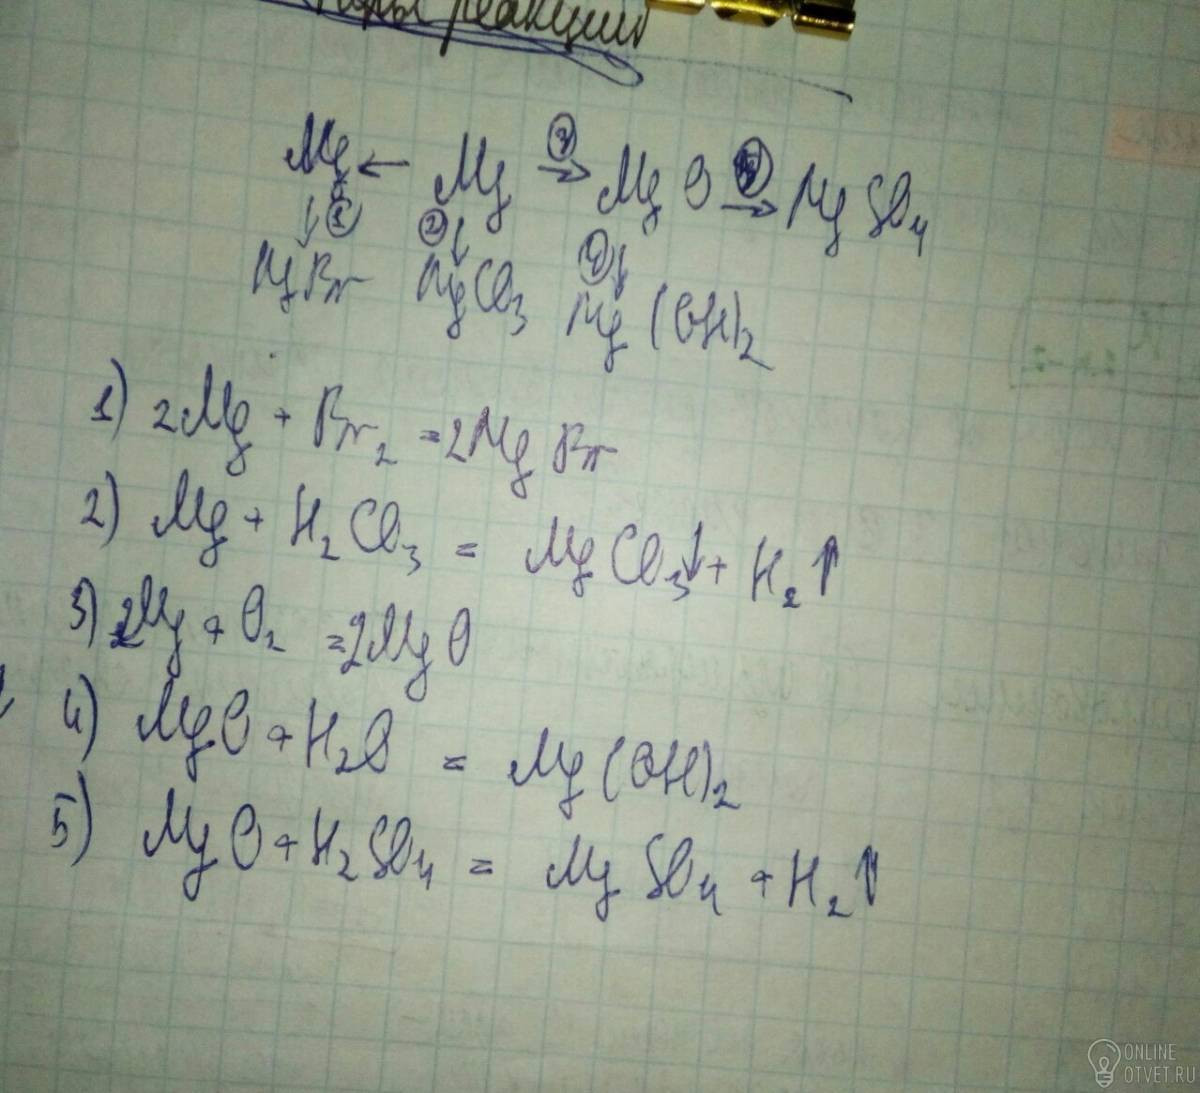 реакции
Mg ← Mg →③ MgO → MgSO₄
↓① ②↓ ④↓
MgBr MgCO₃ Mg(OH)₂
1) 2Mg + Br₂ = 2MgBr
2) Mg + H₂CO₃ = MgCO₃↓ + H₂↑
3) 2Mg + O₂ = 2MgO
4) MgO + H₂O = Mg(OH)₂
5) MgO + H₂SO₄ = MgSO₄ + H₂↑
ONLINE
OTVET.RU